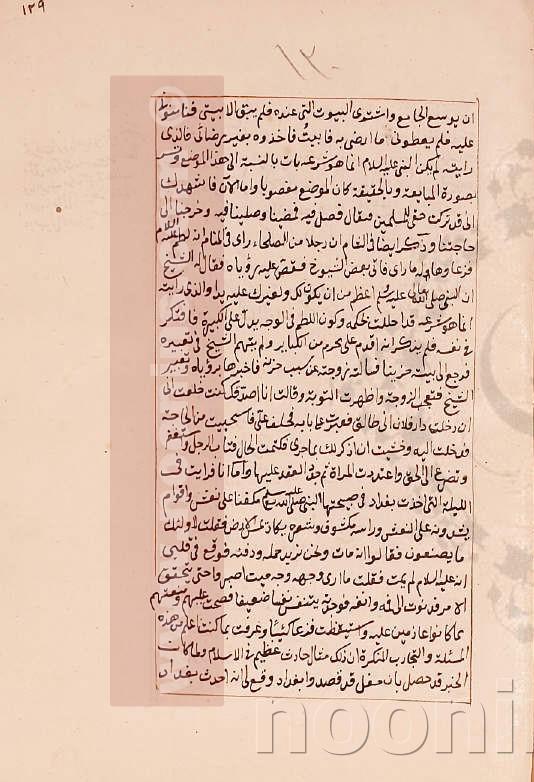 ١٢٩
١٣٠
ان يوسع الجامع واشتدى البيوت التى عنده فلم يبق الا بيتى
عليه فلم يعطونى ما ارضى به فابيت فاخذوه بغير رضائى فالذى
رايته لم يكن النبى عليه السلام انما هو شرعه مات بالنسبة الى هذا الموضع
بصورة المبايعة وبالحقيقة كان الموضع مغصوبا واما الآن فاشهدك
انى قد تركت حقى للمسلمين فقال فصل فيه فمضينا وصلينا فيه وخرجنا الى
حاجتنا وذكر ايضا فى الغام ان رجلا من الصلحاء راى فى المنام انه لطم عليه السلام
فزعا وهاله ما راى فاتى بعض الشيوخ فقص عليه رؤياه فقال له الشيخ
ان النبى صلى الله تعالى عليه وسلم اعظم من ان يكون لك ولغيرك عليه يد والذى رايته
انما هو شرعه قد اخللت بحكمه وكون اللطم فى الوجه يدل على الكبيرة فافتكر
فى نفسه فلم يذكر انه اقدم على محرم من الكباير ولم يتهم الشيخ فى تعبيره
فرجع الى بيته حزينا فسالته زوجته عن سبب حزنه فاخبرها برؤياه وتعبير
الشيخ فتعجب الزوجة واظهرت التوبة وقالت انا اصدقك كنت حلفت انى
ان دخلت دار فلان انى طالق فعبرت على بابه فحلف على فاستحييت من الحاحه
فدخلت اليه وخشيت ان اذكر لك ما جرى فكتمت الحال فتاب الرجل واستغفر
وتضرع الى الحق واعتدت المراة ثم جدد العقد عليها واما انا فرايت فى
الليلة التى اخذت بغداد فى صبيحتها النبى صلى الله عليه وسلم مكفنا على نعش واقوام
يشدونه على النعش وراسه مكشوف وشعره يكاد يمس الارض فقلت لاولئك
ما يصنعون فقالوا انه مات ونحن نريد حمله ودفنه فوقع فى قلبى
انه عليه السلام لم يمت فقلت ما ارى وجهه وجه ميت اصبروا حتى يتحقق
الامر فدنوت الى فمه وانفه فوجدته يتنفس نفسا ضعيفا فصحت عليهم ومنعتهم
بما كانوا عازمين عليه واستيقظت فزعا كئيبا وعرفت بما كنت اعلم من هذه
المسئلة والتجارب المنكرة ان ذلك مثال حادث عظيم فى الاسلام ولما كان
الخبر قد حصل بان مغل قد قصدوا بغداد وقع لى انه اخذت بغداد
nooni